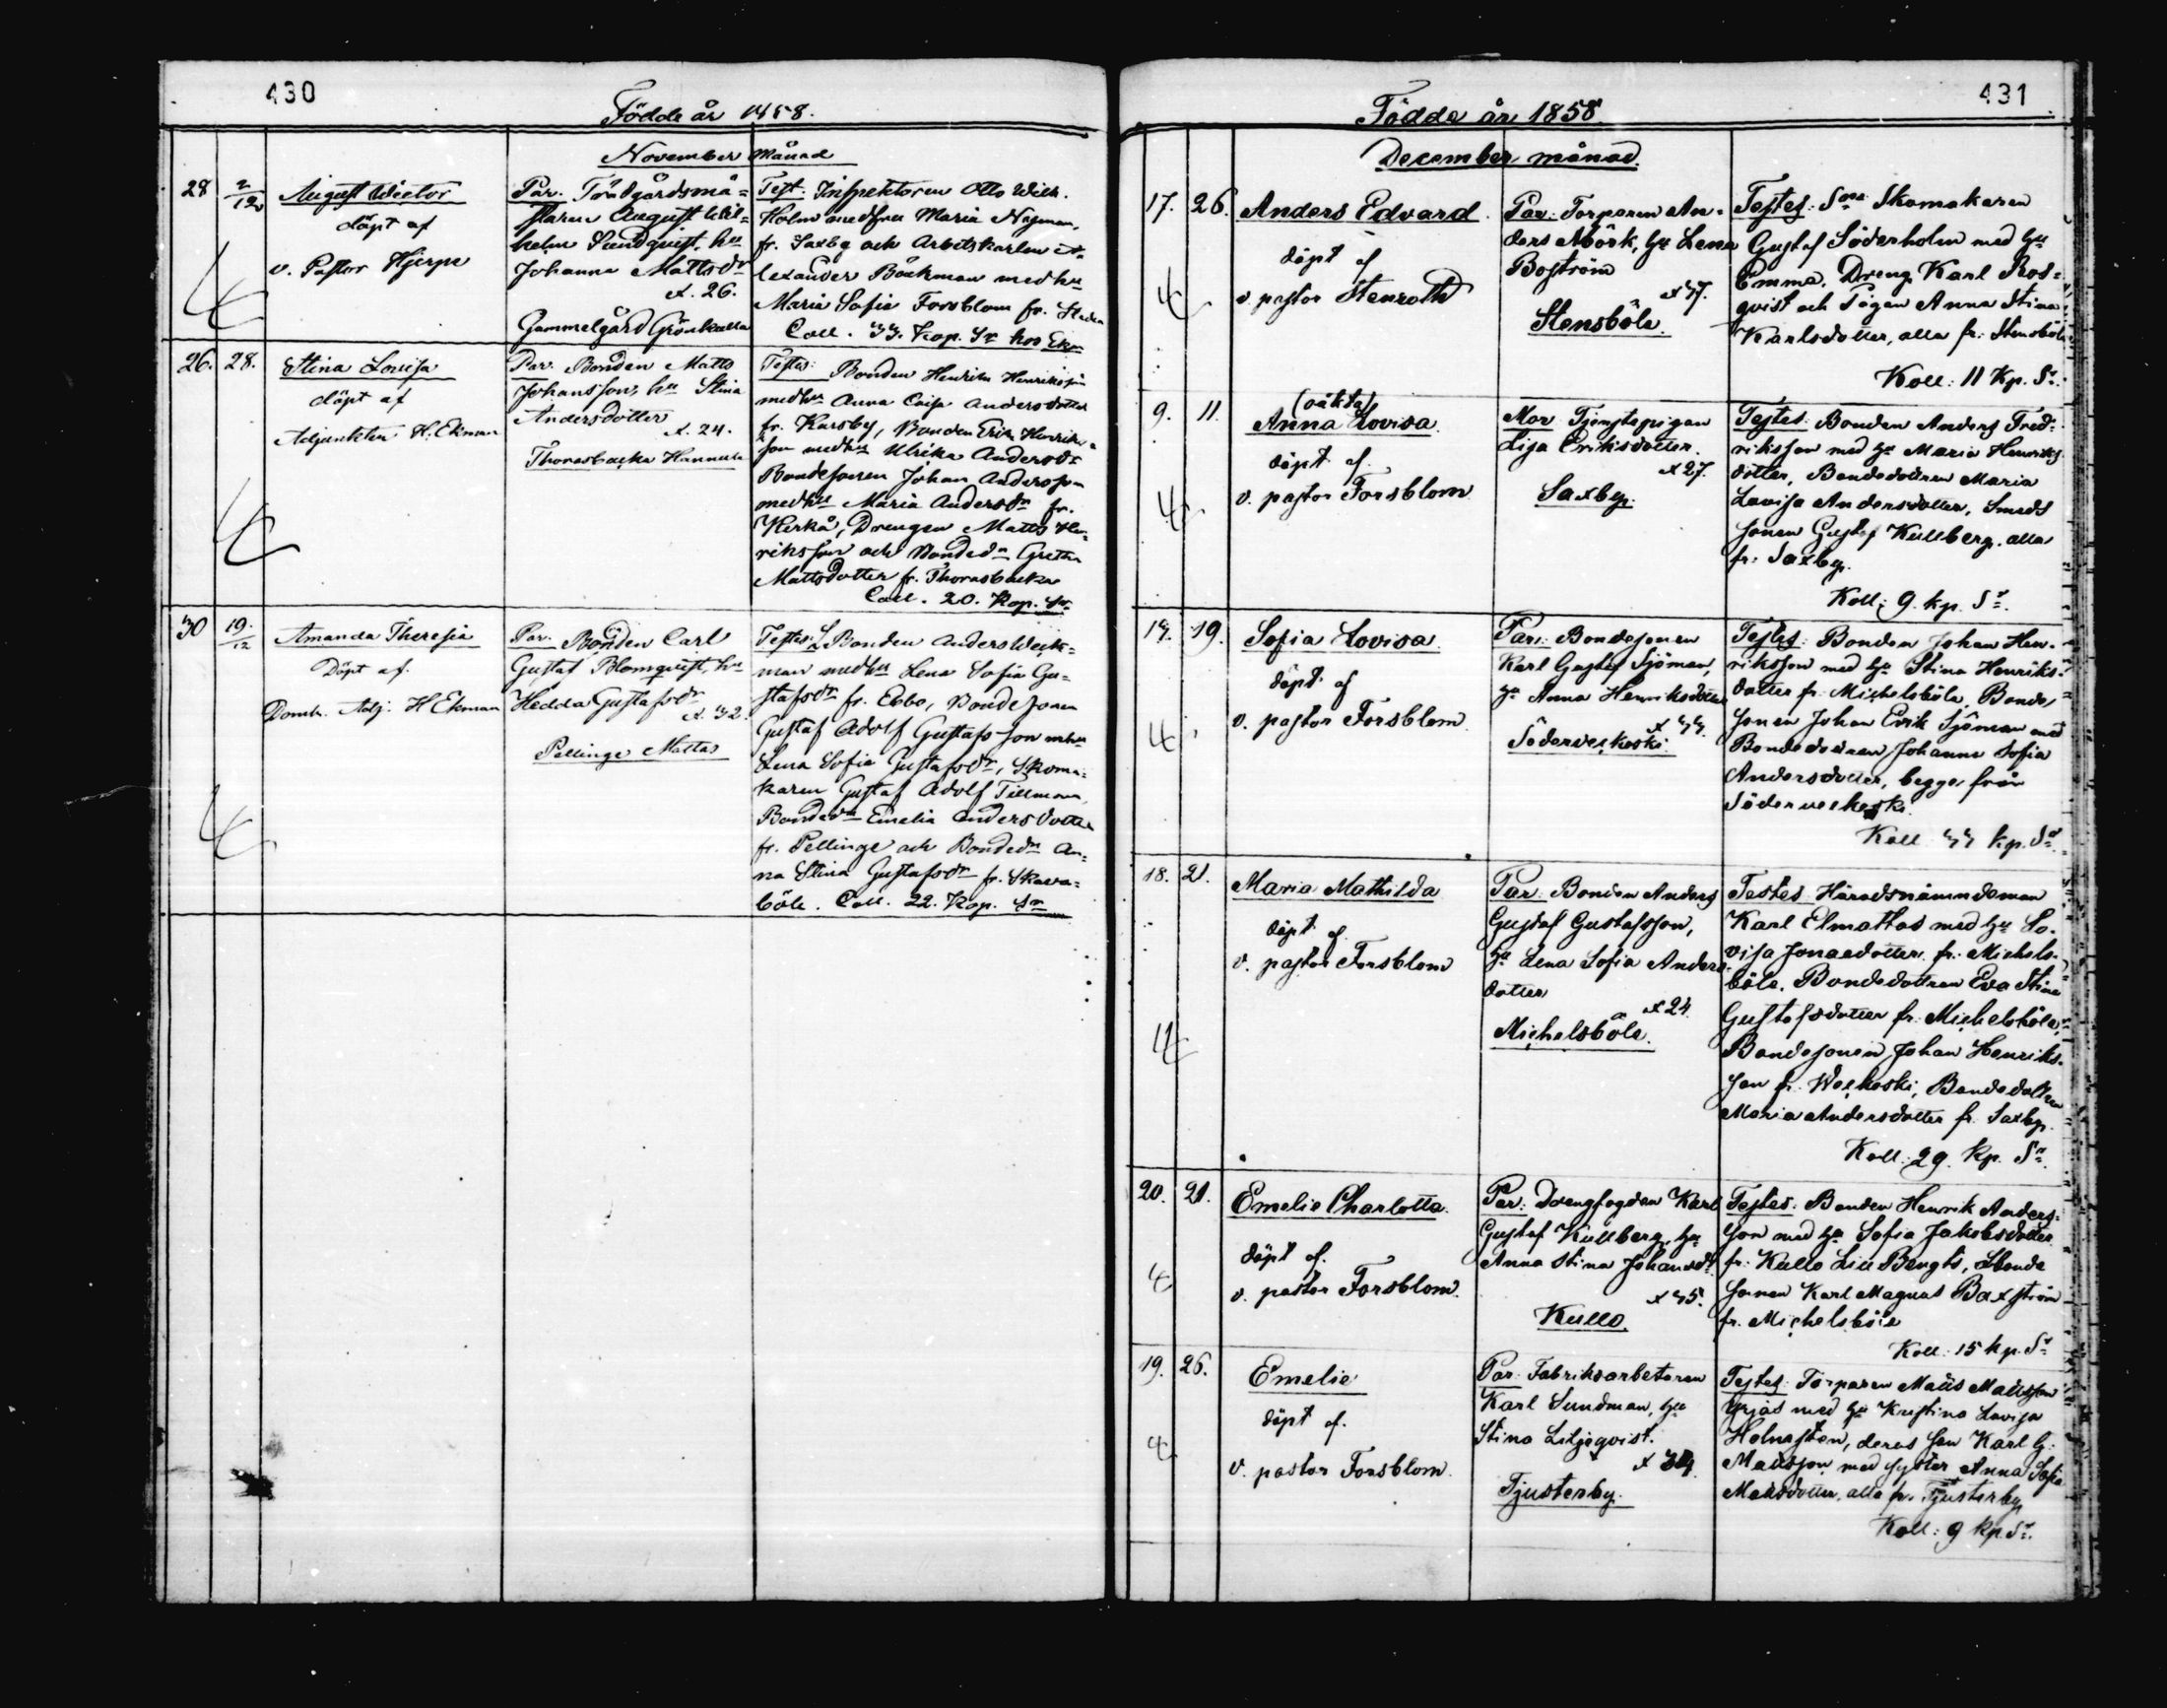 430
Födde år 1858.
November månad
28 2/12 August Wictor
döpt af
v. Pastor Hjerpe
Par. Trädgårdsmä=
staren August Wil=
helm Sundquist, hu
Johanna Mattsdr
æt. 26.
Gammelgård Grönkulla
Test. Inspektoren Otto Wilh.
Holm med fru Maria Nyman,
fr. Saxby och Arbetskarlen A=
lexander Böckman med hu
Maria Sofia Forsblom fr. Staden
Coll. 33. Kop. Sr hos Ekn
26. 28. Stina Lovisa
döpt af
Adjunkten H. Ekman
Par. Bonden Matts
Johansson, hu Stina
Andersdotter
æt. 24.
Thorasbacka Hannula
Testes: Bonden Henrik Henriksson
med hu Anna Caisa Andersdotter
fr. Karsby, Bonden Erik Henriks=
son med hu Ulrika Andersdr
Bondesonen Johan Andersson
med hu Maria Andersdr fr.
Kerkå, Drengen Matts Hen=
riksson och Bondedn Gretha
Mattsdotter fr. Thorasbacka
Coll. 20. Kop. Sr
30 19/12 Amanda Theresia
Döpt af.
Domk. Adj. H Ekman
Par. Bonden Carl
Gustaf Blomquist, hu
Hedda Gustafsdr
æt. 32.
Pellinge Mattas
Testes: Bonden Anders Weck=
man med hu Lena Sofia Gu=
stafsdr fr. Ebbo, Bondesonen
Gustaf Adolf Gustafsson m hu
Lena Sofia Gustafsdr, Skoma=
karen Gustaf Adolf Tillman,
Bondedn Emelia Andersdotter
fr. Pellinge och Bondedn An=
na Stina Gustafsdr fr. Skava=
böle. Coll. 22. Kop. Sr
431
Födde år 1858.
December månad.
17. 26. Anders Edvard.
döpt af
v. pastor Stenroth
Par: Torparen An-
ders Mörk, hu Lena
Boström
æt 47.
Stensböle.
Testes: Skomakaren
Gustaf Söderholm med hu
Emma, Dreng Karl Ros=
qvist och Pigan Anna Stina
Karlsdotter, alla fr. Stensböle
Koll: 11 Kp. Sr.
9. 11. (oäkta)
Anna Lovisa.
döpt af.
v. pastor Forsblom
Mor Tjenstepigan
Lisa Eriksdotter.
æt 27.
Saxby.
Testes: Bonden Anders Fred-
riksson med hu Maria Henriks
dotter, Bondedottren Maria
Lovisa Andersdotter, Smeds
sonen Gustaf Kullberg. alla
fr. Saxby.
Koll: 9. kp. Sr.
14. 19. Sofia Lovisa.
döpt af
v. pastor Forsblom.
Par: Bondesonen
Karl Gustaf Sjöman,
hu Anna Henriksdotter
æt 33.
Söderveckoski.
Testes: Bonden Johan Hen-
riksson med hu Stina Henriks-
dotter fr. Michelsböle, Bonde,
sonen Johan Erik Sjöman med
Bondedottren Johanna Sofia
Andersdotter, begge från
Söderveckoski.
Koll 33 kp. Sr.
18. 21. Maria Mathilda
döpt af.
v. pastor Forsblom
Par: Bonden Anders
Gustaf Gustafsson,
hu Lena Sofia Anders
dotter
æt 24.
Michelsböle.
Testes: Häradsnämndeman
Karl Elmattas med hu Lo-
visa Jonaedotter fr. Michels-
böle. Bondedottren Eva Stina
Gustafsdotter fr. Michelsböle,
Bondesonen Johan Henriks-
son fr. Weckoski, Bondedottren
Maria Andersdotter fr. Saxby.
Koll: 29. Kp. Sr.
20. 21. Emelie Charlotta.
döpt af.
v. pastor Forsblom.
Par: Drengfogden Karl
Gustaf Kullberg, hu
Anna Stina Johansdr
æt 35.
Kullo.
Testes: Bonden Henrik Anders-
son med hu Sofia Jakobsdotter
fr. Kullo Lill Bengts, Bonde
sonen Karl Magnus Baxström
fr. Michelsböle
Koll: 15 kp. Sr
19. 26. Emelie
döpt af.
v. pastor Forsblom.
Par: Fabriksarbetaren
Karl Sundman, hu
Stina Liljeqvist.
æt 34.
Tjusterby.
Testes: Torparen Matts Mattsson
med hu Kristina Lovisa
Holmsten, deras son Karl G.
Mattsson med syster Anna Sofia
Matsdotter, alla fr. Tjusterby
Koll: 9 kp Sr.